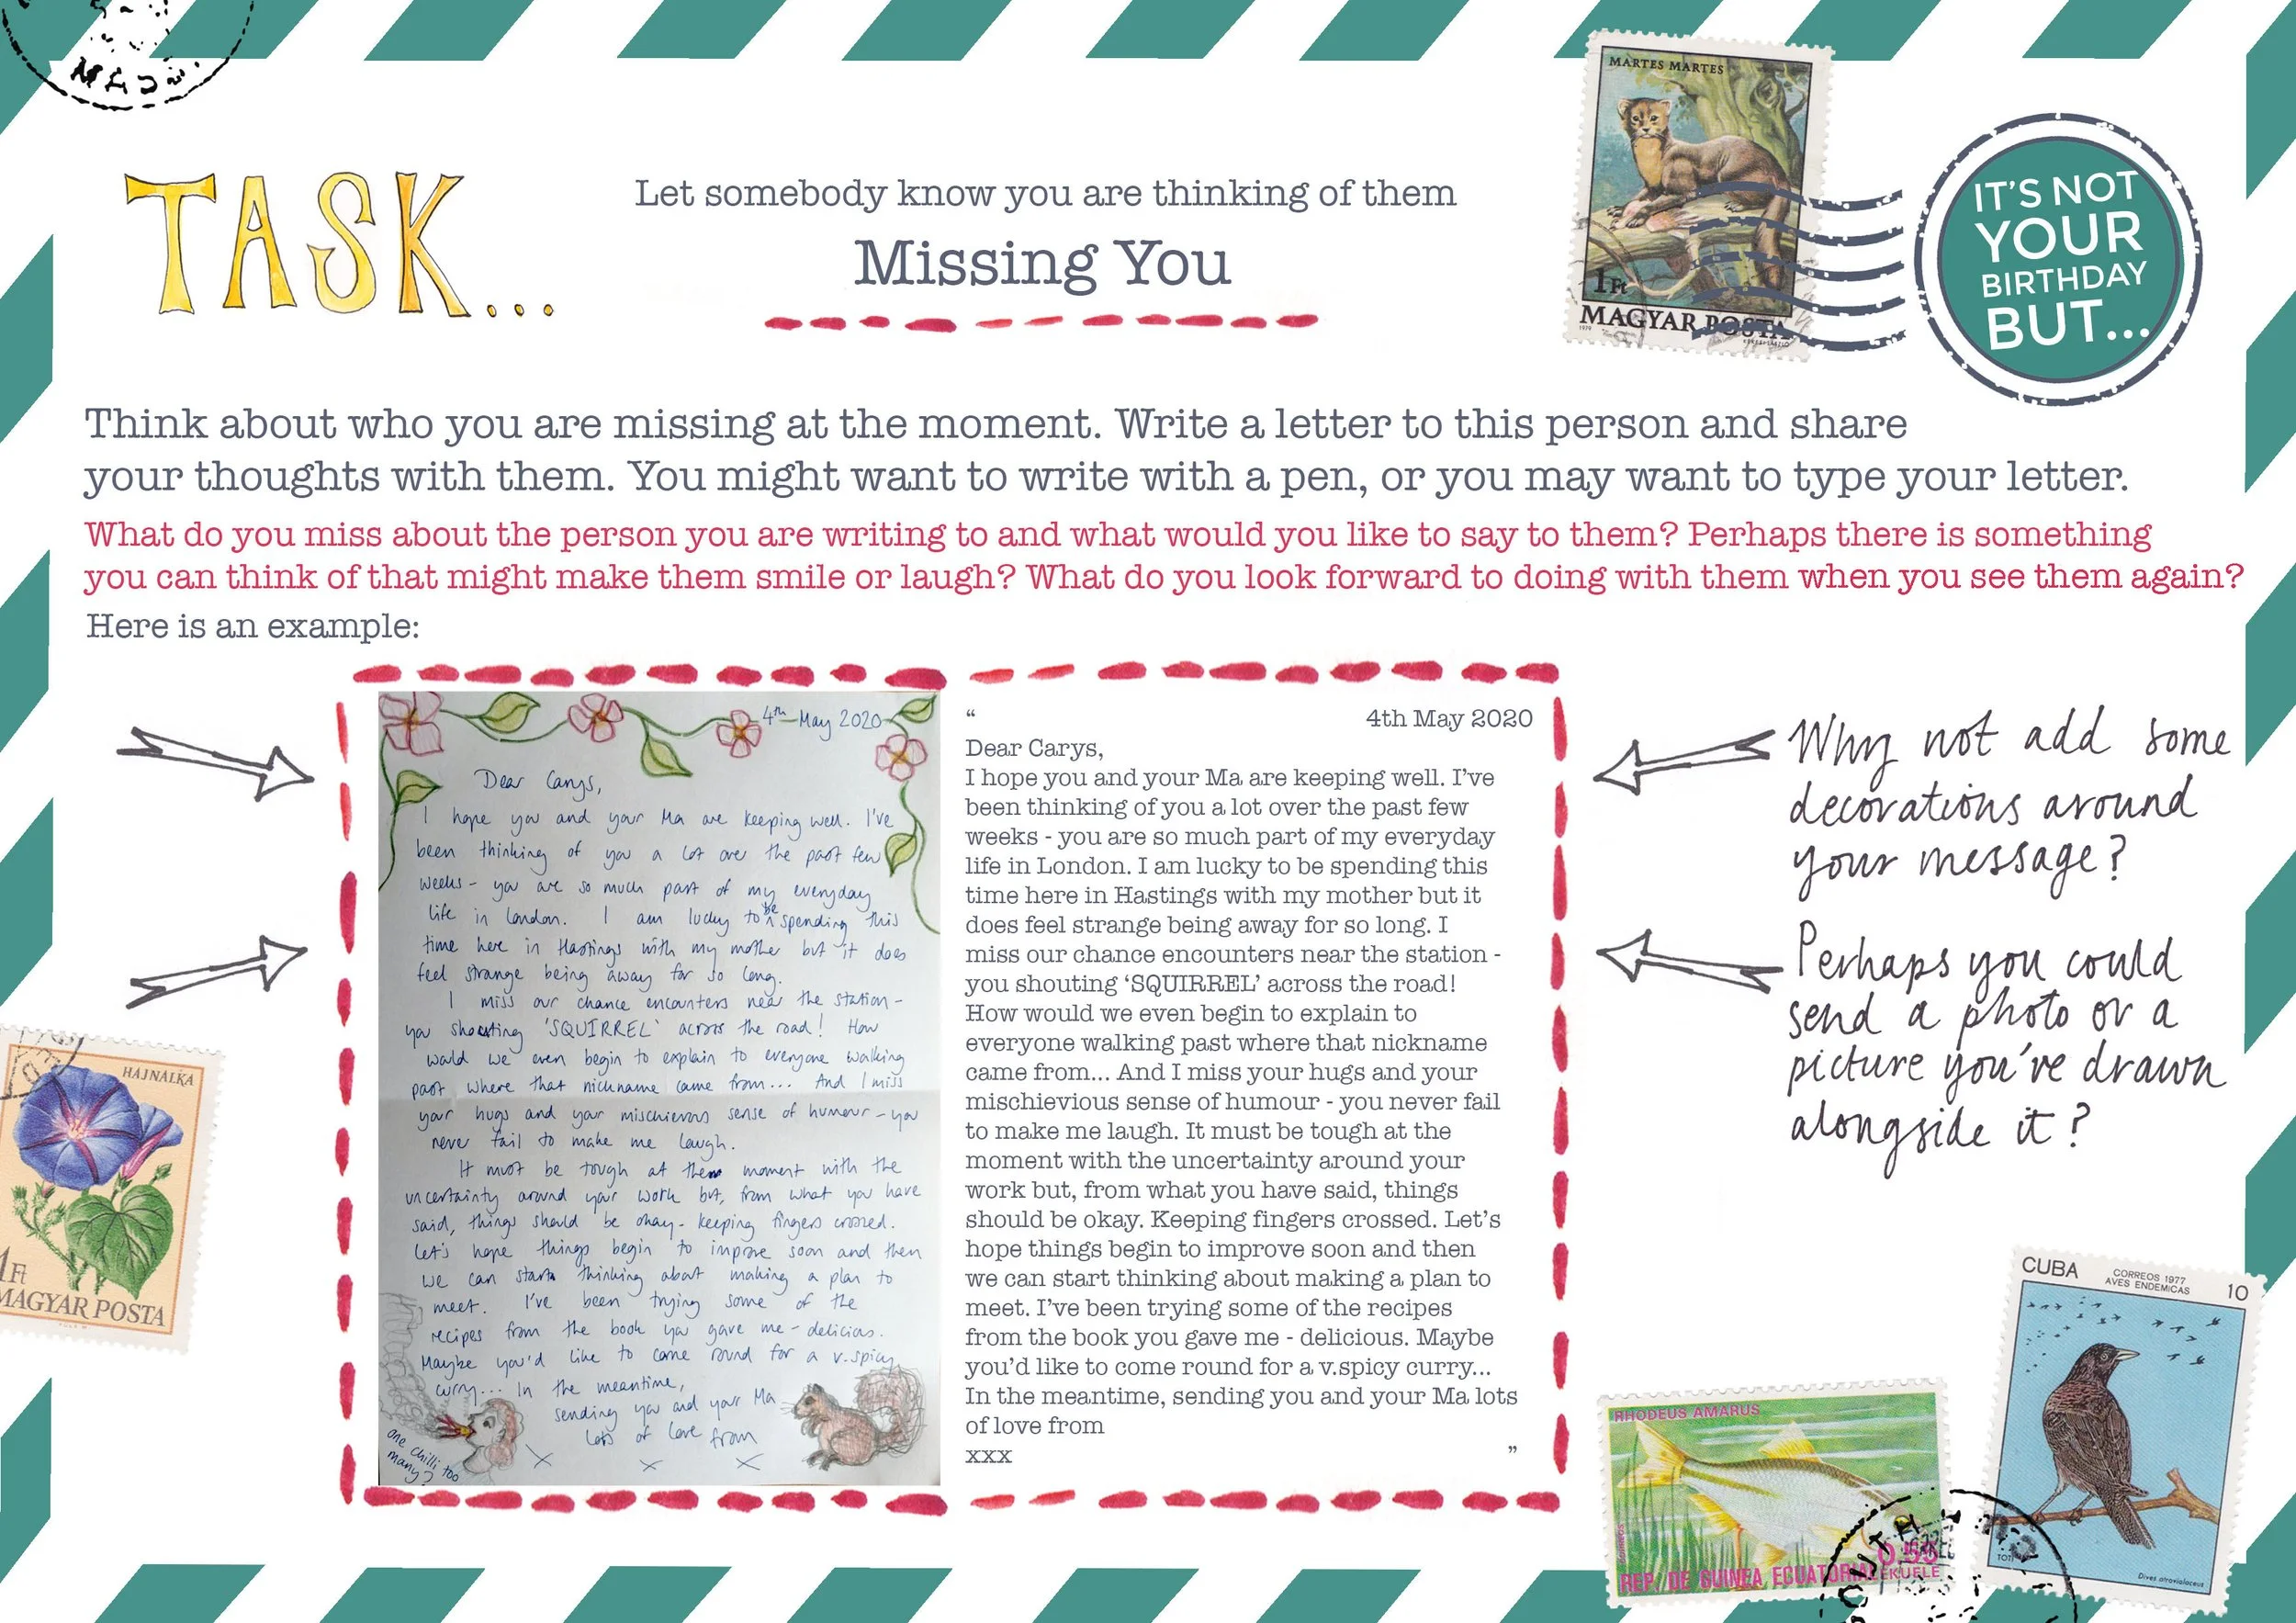 MADJ.
TASK...
Let somebody know you are thinking of them
Missing You
MARTES MARTES
1Ft
MAGYAR POSTA
1979
IT'S NOT
YOUR
BIRTHDAY
BUT...
Think about who you are missing at the moment. Write a letter to this person and share
your thoughts with them. You might want to write with a pen, or you may want to type your letter.
What do you miss about the person you are writing to and what would you like to say to them? Perhaps there is something
you can think of that might make them smile or laugh? What do you look forward to doing with them when you see them again?
Here is an example:
4th May 2020
Dear Carys,
I hope you and your Ma are keeping well. I've
been thinking of you a lot over the past few
weeks - you are so much part of my everyday
life in London. I am lucky to be spending this
time here in Hastings with my mother but it does
feel strange being away for so long.
I miss our chance encounters near the station -
you shouting 'SQUIRREL' across the road! How
would we even begin to explain to everyone walking
past where that nickname came from... And I miss
your hugs and your mischievous sense of humour - you
never fail to make me laugh.
It must be tough at the moment with the
uncertainty around your work but, from what you have
said, things should be okay - keeping fingers crossed.
Let's hope things begin to improve soon and then
we can start thinking about making a plan to
meet. I've been trying some of the
recipes from the book you gave me - delicious.
Maybe you'd like to come round for a v.spicy
curry... In the meantime,
sending you and your Ma
lots of love from
x x x
one chilli too
many?
“
4th May 2020
Dear Carys,
I hope you and your Ma are keeping well. I've
been thinking of you a lot over the past few
weeks - you are so much part of my everyday
life in London. I am lucky to be spending this
time here in Hastings with my mother but it
does feel strange being away for so long. I
miss our chance encounters near the station -
you shouting 'SQUIRREL' across the road!
How would we even begin to explain to
everyone walking past where that nickname
came from... And I miss your hugs and your
mischievious sense of humour - you never fail
to make me laugh. It must be tough at the
moment with the uncertainty around your
work but, from what you have said, things
should be okay. Keeping fingers crossed. Let's
hope things begin to improve soon and then
we can start thinking about making a plan to
meet. I've been trying some of the recipes
from the book you gave me - delicious. Maybe
you'd like to come round for a v.spicy curry...
In the meantime, sending you and your Ma lots
of love from
xxx
”
Why not add some
decorations around
your message?
Perhaps you could
send a photo or a
picture you've drawn
alongside it?
HAJNALKA
1Ft
MAGYAR POSTA
RHODEUS AMARUS
0'55
REP. DE GUINEA ECUATORIAL EKUELE
CUBA
CORREOS 1977
AVES ENDEMICAS
10
TOTI
Dives atroviolaceus